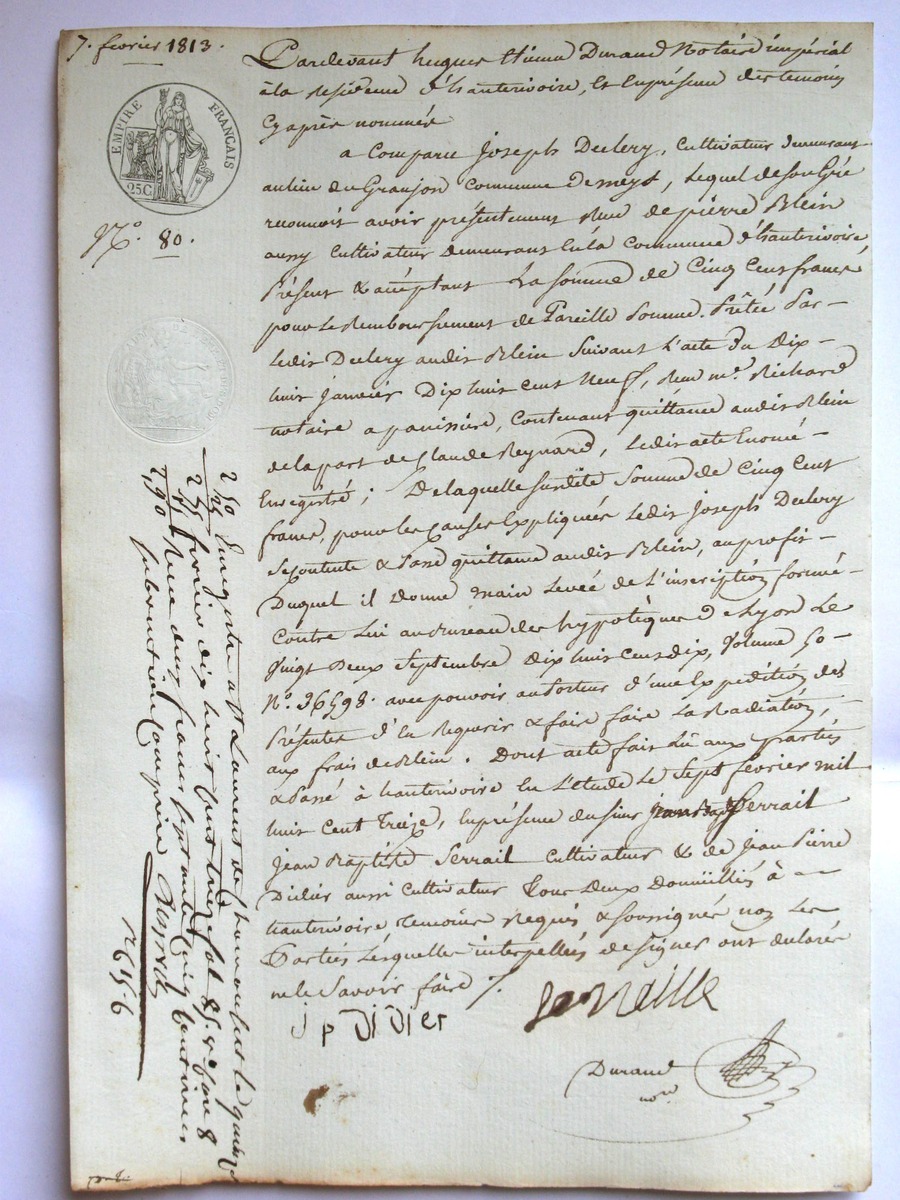 7. fevrier 1813.
EMPIRE FRANÇAIS
25 C.
N.º 80.
Pardevant hugues Etienne Durand Notaire impérial
à la Residence d'hauterivoire, Et Enprésence des temoins
Cy après nommés
a Comparu Joseph Declery, cultivateur demeurant
au lieu du Granjon commune de meys, lequel de son Gré
reconnoit avoir présentement Reçu de pierre Blein
aussy Cultivateur demeurant En la commune d'hauterivoire
Présent & acceptant La somme de Cinq Cent francs
pour le Remboursement de Pareille Somme Prêtée Par
Ledit Declery audit Blein Suivant L'acte du Dix
huit Janvier Dix huit cent Neuf, Reçu me. Richard
notaire a panissière, Contenant quittance audit Blein
de la part de Claude Reynard, Ledit acte Enoncé
Enregistré ; De laquelle susdite Somme de Cinq Cent
francs, pour les Causes Expliquées Ledit Joseph Declery
Se contente & Passe quittance audit Blein, au profit
Duquel il donne main Levée de L'inscription formée
Contre Lui au Bureau des hypotèques de Lyon Le
Vingt Deux Septembre Dix huit Cent dix, Volume 50
Nº. 36598. avec pouvoir au Porteur d'une Expedition des
Présentes d'En Requerir & faire faire La Radiation,
aux frais de Blein. Dont acte fait Lû aux parties
& Passé à hauterivoire En L'etude Le Sept fevrier mil
huit Cent Treize, En présence du sieur Jean Bapt Serrail
Jean Baptiste Serrail Cultivateur & de Jean Pierre
Didier aussi Cultivateur Tous Deux Domiciliés à
hauterivoire temoins Requis & soussignés non Les
Parties Lesquelles interpellées de signer ont declarés
ne le Savoir faire /.
j p Didier
Durand
nore
2,50 Enregistré a St Laurent de Chamousset le quinze
25 fevrier dix huit cent treize fol. 85. vº. Case 8
2,75 Reçu deux francs septante cinq centimes
subvention Comprise